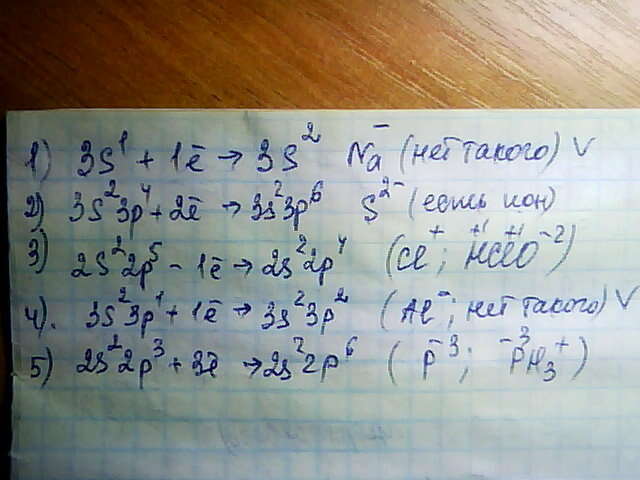 1) 3s¹ + 1ē → 3s² Na⁻ (нет такого) V
2) 3s²3p⁴ + 2ē → 3s²3p⁶ S²⁻ (есть ион)
3) 2s²2p⁵ - 1ē → 2s²2p⁴ (Cl⁺; H⁺¹Cl⁺¹O⁻²)
4). 3s²3p¹ + 1ē → 3s²3p² (Al⁻; нет такого) V
5) 2s²2p³ + 3ē → 2s²2p⁶ (P⁻³; ⁻³PH₃⁺)